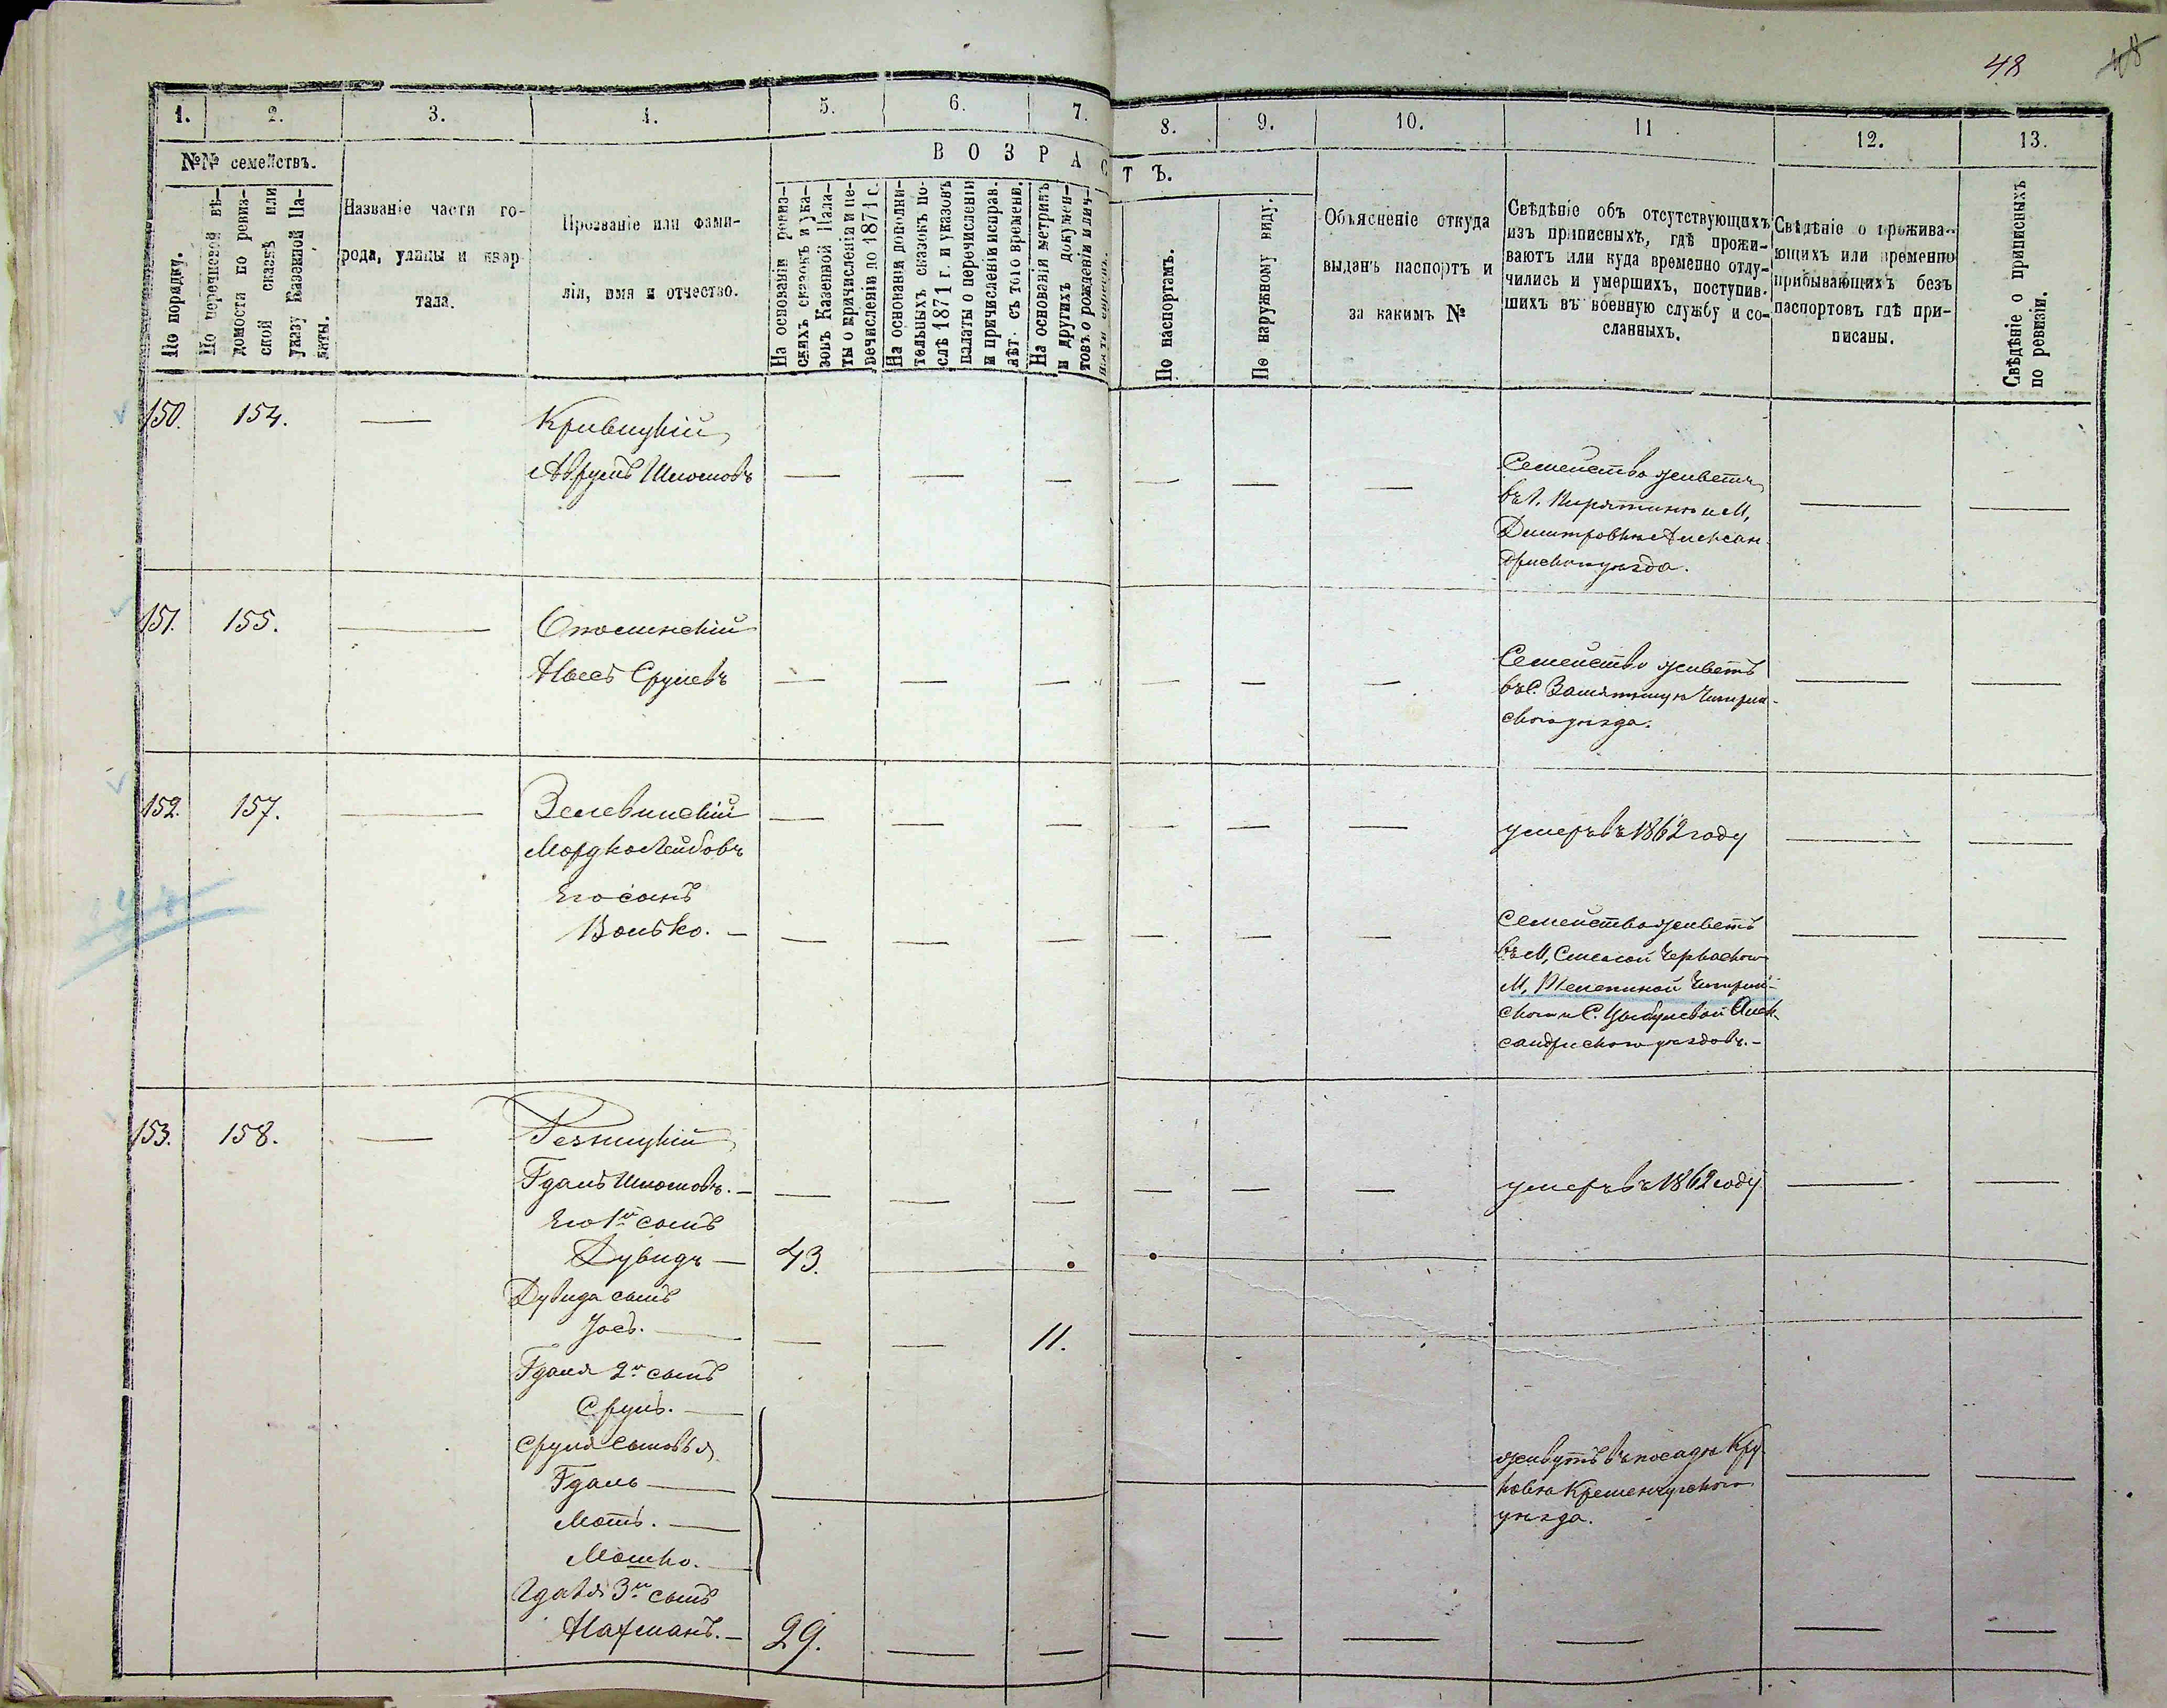 48
48
1.
2.
3.
4.
5.
6.
7.
8.
9.
10.
11
12.
13.
№№ семействъ.
По порядку.
По перечневой вѣ-
домости по ревиз-
ской сказкѣ или
указу Казенной Па-
латы.
Названіе части го-
рода, улицы и квар-
тала.
Прозваніе или фами-
лія, имя и отчество.
ВОЗРАСТЪ.
На основаніи ревиз-
скихъ сказокъ и ука-
зовъ Казенной Пала-
ты о причисленіи и пе-
речисленіи до 1871 г.
На основаніи дополни-
тельныхъ сказокъ по-
слѣ 1871 г. и указовъ
палаты о перечисленіи
и причисленіи исправ.
лѣт. съ того времени.
На основаніи метрикъ
и другихъ докумен-
товъ о рожденіи и лич-
По паспортамъ.
По наружному виду.
Объясненіе откуда
выданъ паспортъ и
за какимъ №
Свѣдѣніе объ отсутствующихъ
изъ приписныхъ, гдѣ прожи-
ваютъ или куда временно отлу-
чились и умершихъ, поступив-
шихъ въ военную службу и со-
сланныхъ.
Свѣдѣніе о прожива-
ющихъ или временно
прибывающихъ безъ
паспортовъ гдѣ при-
писаны.
Свѣдѣніе о приписныхъ
по ревизіи.
150. 154. — Кривицкій
Аврумъ Шлiомовъ — — — — — — Семейство живетъ — —
въ г. Пирятинѣ и М,
Дмитровкѣ Алексан-
дрiскаго уѣзда.
151. 155. — Сполинскій
Насъ Срулевъ — — — — — — Семейство живетъ — —
въ С. Замятницѣ Чигрин-
скаго уѣзда.
152. 157. — Зелевинскій — — — — — — умеръ въ 1862 году — —
Мордко Лейбовъ
Его сынъ
Волько. — — — — — — — Семейство живетъ — —
въ М, Смелой Черкаскаго
М, Телепиной Чигрин-
скаго и С. Цыбулевой Алек-
сандрiскаго уѣздовъ. —
153. 158. — Резницкій
Гдаль Шлiомовъ. — — — — — — — умеръ въ 1862 году — —
Его 1й сынъ
Дувидъ — 43.
Дувида сынъ
Iось. — — — 11. —
Гдаля 2й сынъ
Сруль. —
Сруля сыновья
Гдаль — — — живутъ въ посадѣ Крю- — —
Мотъ. — ковѣ Кременчугскаго
уѣзда.
Мошко. —
Гдаля 3й сынъ
Нахманъ. — 29. — — — — — — — —